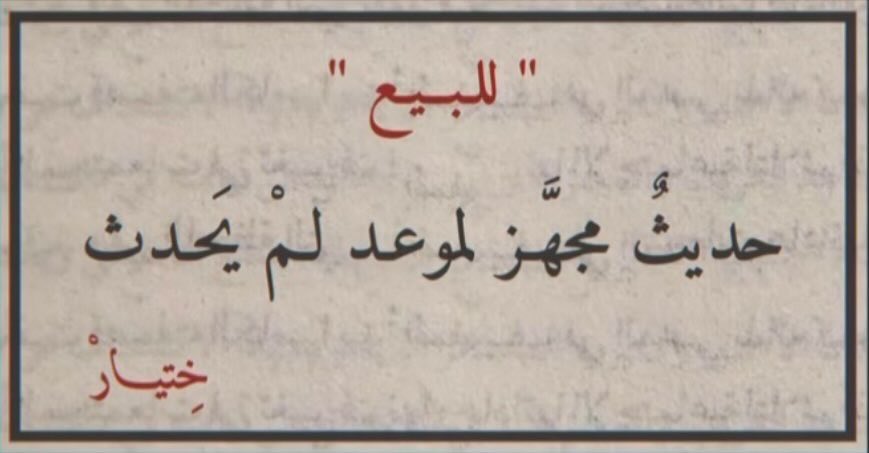 " للبيع "
حديثٌ مجهَّز لموعد لمْ يَحدث
خِتيارْ